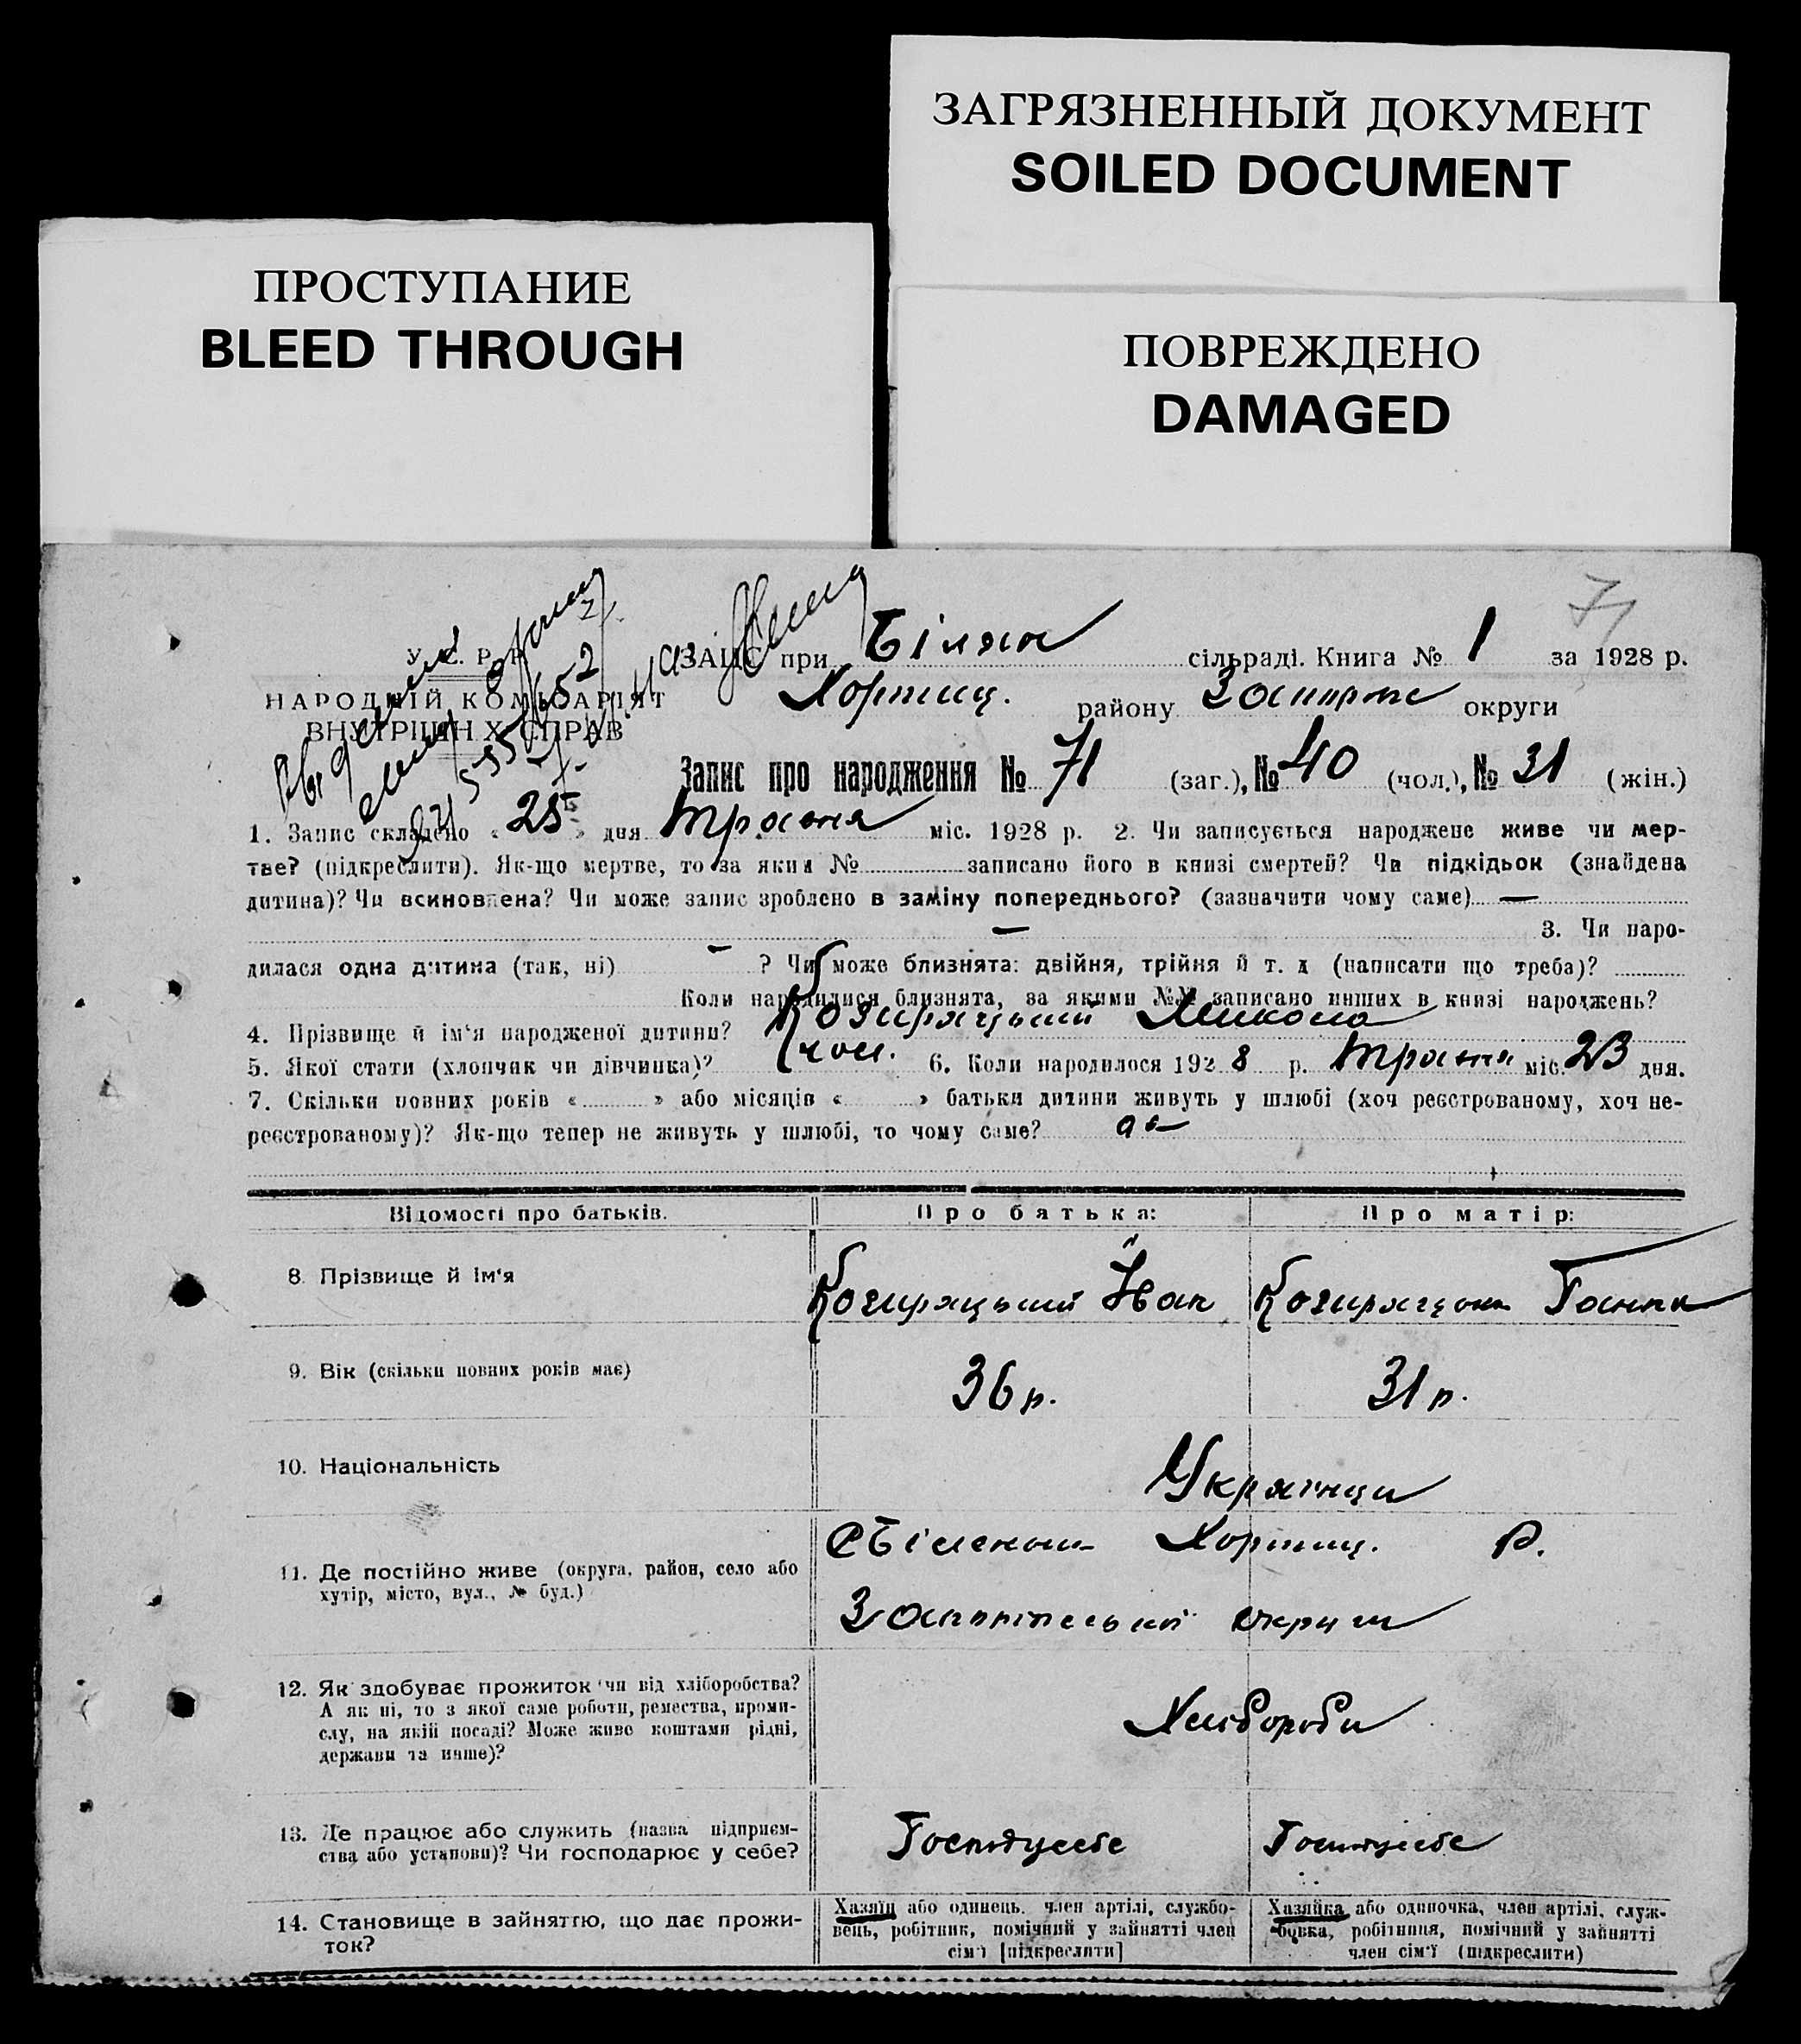 ЗАГРЯЗНЕННЫЙ ДОКУМЕНТ
SOILED DOCUMENT
ПРОСТУПАНИЕ
BLEED THROUGH
ПОВРЕЖДЕНО
DAMAGED
71
У. С. Р. Р.
НАРОДНІЙ КОМІСАРІЯТ
ВНУТРІШНІХ СПРАВ
ЗАПС при сільраді. Книга № 1 за 1928 р.
Хортиц. району округи
Запис про народження № 71 (заг.), № 40 (чол.), № 31 (жін.)
1. Запис складено « 25 » дня Травня міс. 1928 р. 2. Чи записується народжене живе чи мер-
тве? (підкреслити). Як-що мертве, то за яким № записано його в книзі смертей? Чи підкідьок (знайдена
дитина)? Чи всиновлена? Чи може запис зроблено в заміну попереднього? (зазначити чому саме) —
— 3. Чи наро-
дилася одна дитина (так, ні) — ? Чи може близнята: двійня, трійня й т. д (написати що треба)?
Коли народилися близнята, за якими №№ записано инших в книзі народжень?
4. Прізвище й ім'я народженої дитини? Микола
5. Якої стати (хлопчик чи дівчинка)? чол. 6. Коли народилося 1928 р. Травня міс. 23 дня.
7. Скільки повних років « » або місяців « » батьки дитини живуть у шлюбі (хоч реєстрованому, хоч не-
реєстрованому)? Як-що тепер не живуть у шлюбі, то чому саме?
Відомості про батьків. Про батька: Про матір:
8. Прізвище й ім'я Іван Ганна
9. Вік (скільки повних років має) 36 р. 31 р.
10. Національність Українци
11. Де постійно живе (округа, район, село або
хутір, місто, вул., № буд.)
Хортиц. Р.
округи
12. Як здобуває прожиток чи від хліборобства?
А як ні, то з якої саме роботи, ремества, проми-
слу, на якій посаді? Може живе коштами рідні,
держави та инше)?
Хлібороби
13. Де працює або служить (назва підприєм-
ства або установи)? Чи господарює у себе?
14. Становище в зайняттю, що дає прожи-
ток?
Хазяїн або одинець, член артілі, службо-
вець, робітник, помічний у зайнятті член
сім'ї [підкреслити]
Хазяйка або одиночка, член артілі, служ-
бовка, робітниця, помічний у зайнятті
член сім'ї (підкреслити)